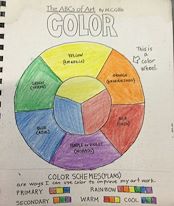 The ABCs of Art By McGillis
COLOR
YELLOW
(AMARILLO)
This is
a
color
wheel.
GREEN
(VERDE)
ORANGE
BLUE
(AZUL)
RED
PURPLE or VIOLET
(MORADO)
COLOR SCHEMES (PLANS)
are ways I can use color to improve my art work.
PRIMARY
RAINBOW
SECONDARY
WARM
COOL